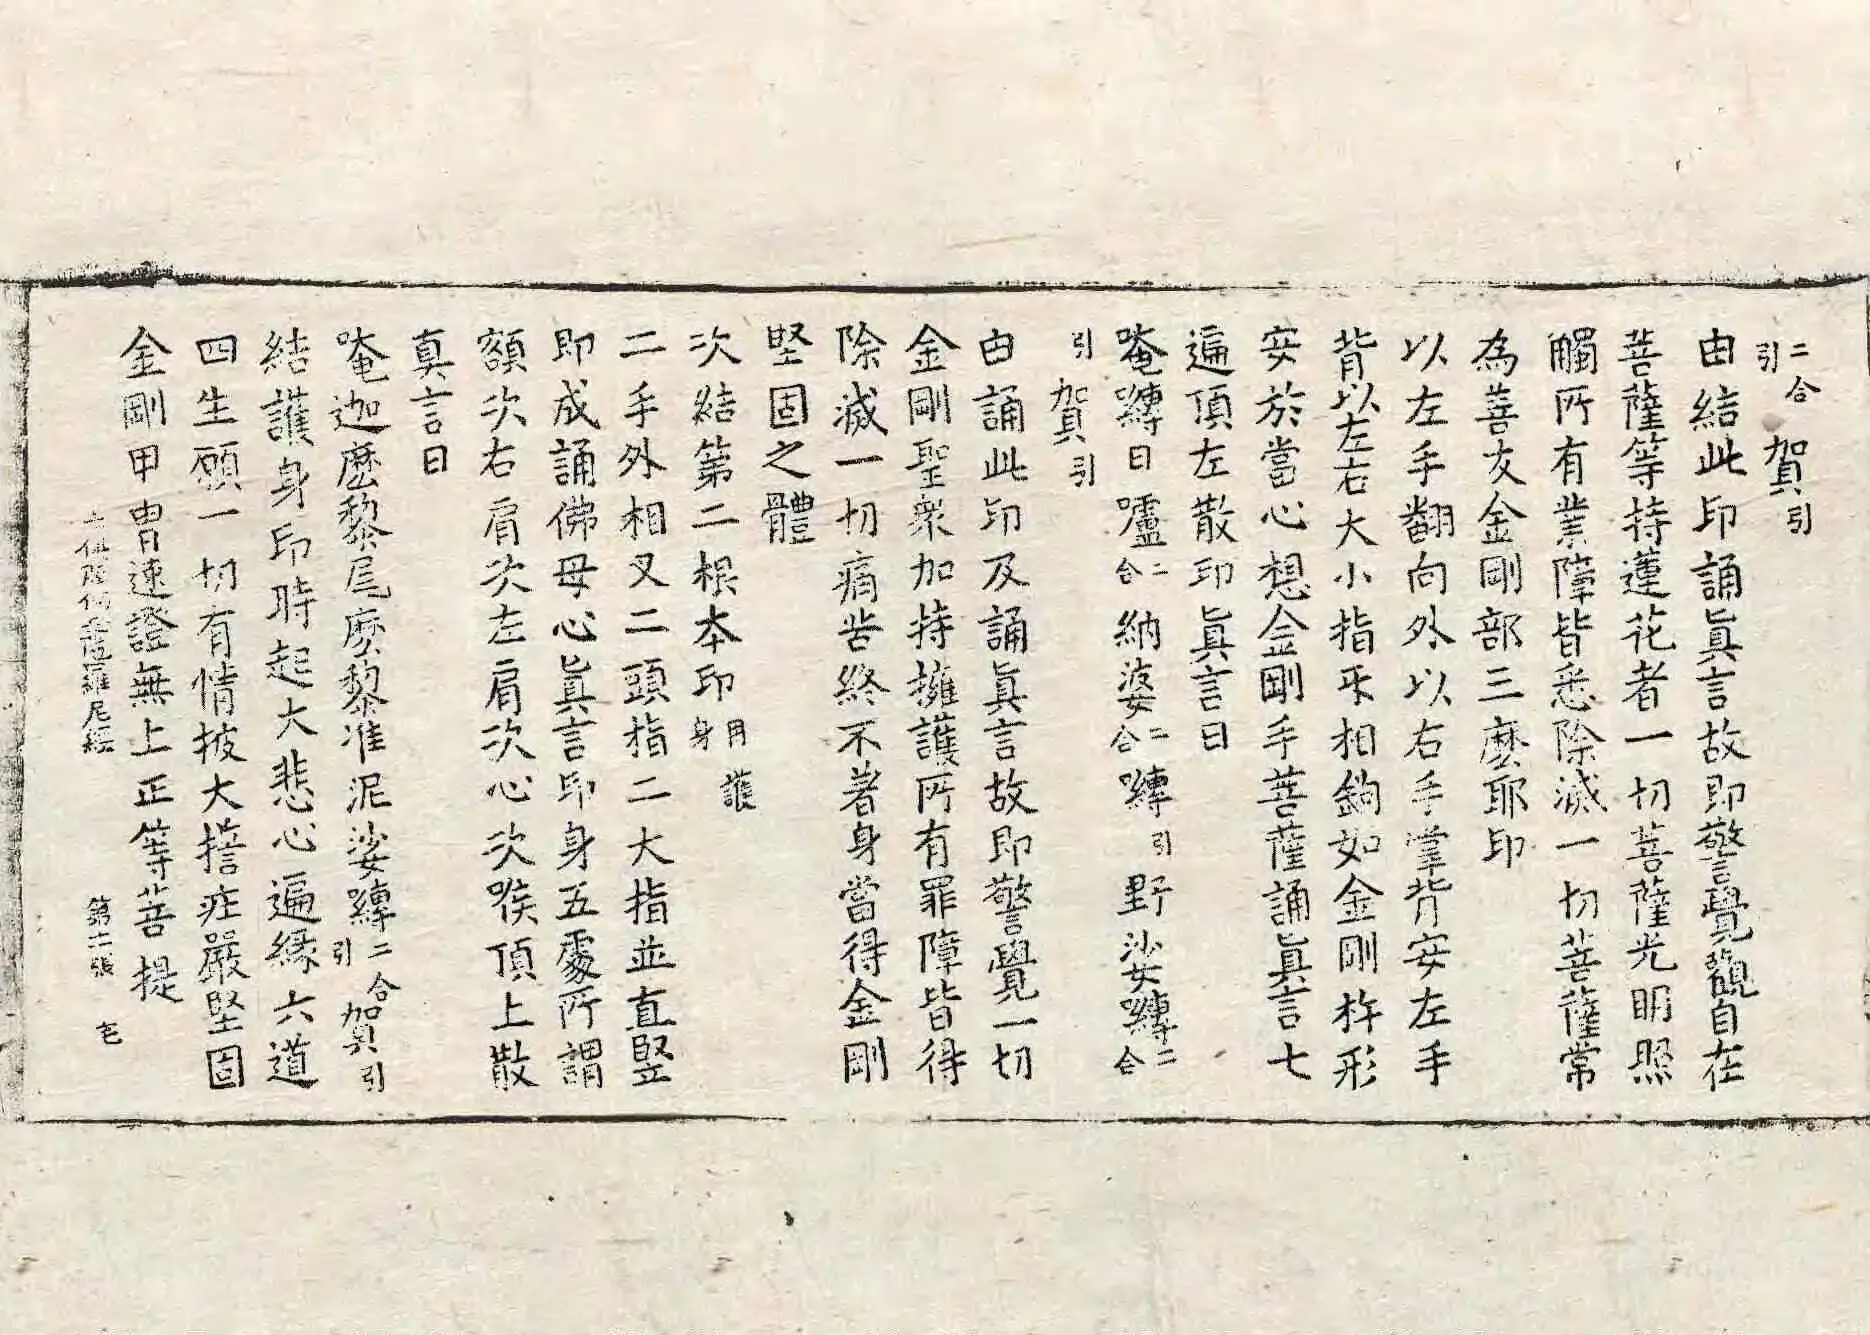 二合引賀引
由結此印誦眞言故即警覺觀自在
菩薩等持蓮花者一切菩薩光明照
觸所有業障皆悉除滅一切菩薩常
為善友金剛部三麽耶印
以左手翻向外以右手掌背安左手
背以左右大小指互相鉤如金剛杵形
安於當心想金剛手菩薩誦眞言七
遍頂左散印眞言曰
唵嚩日嚧二合納婆二合嚩引野娑嚩二合
引賀引
由誦此印及誦眞言故即警覺一切
金剛聖衆加持擁護所有罪障皆得
除滅一切痛苦終不著身當得金剛
堅固之體
次結第二根本印用護身
二手外相叉二頭指二大指並直竪
即成誦佛母心眞言印身五處所謂
額次右肩次左肩次心次喉頂上散
真言曰
唵迦麽黎尾麽黎准泥娑嚩二合引賀引
結護身印時起大悲心遍緣六道
四生願一切有情披大誓莊嚴堅固
金剛甲冑速證無上正等菩提
陁羅尼經 第十一張